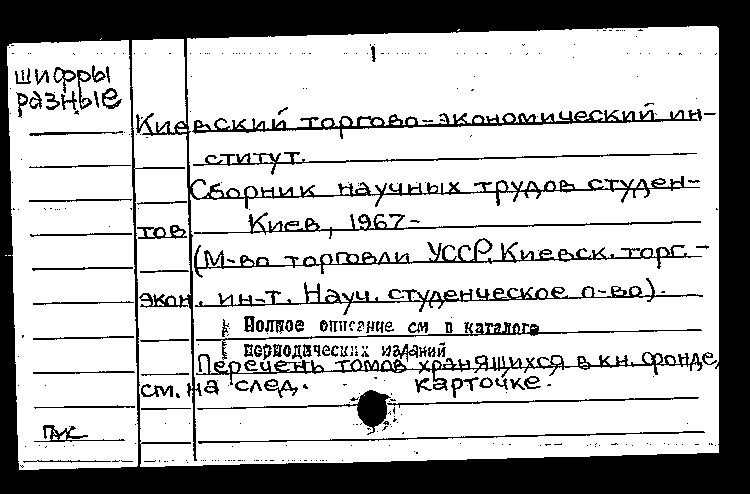 шифры
разные
Киевский торгово-экономический ин-
ститут.
Сборник научных трудов студен-
тов Киев, 1967-
(М-во торговли УССР. Киевск. торг.-
экон. ин-т. Науч. студенческое о-во).
Полное описание см в каталоге
периодических изданий
Перечень томов хранящихся в кн. фонде,
см. на след. карточке.